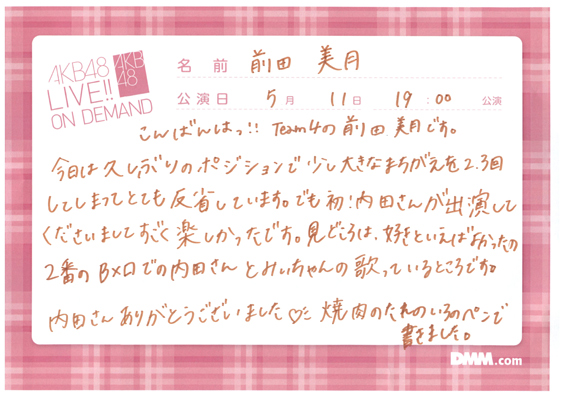 AKB48
LIVE!!
ON DEMAND
AKB
48
名 前 前田 美月
公演日 5月 11日 19:00 公演
こんばんはっ!! Team4の前田美月です。
今日は久しぶりのポジションで少し大きなまちがえを2.3回
してしまってとても反省しています。でも初!内田さんが出演して
くださいましてすごく楽しかったです。見どころは、好きといえばよかったの
2番のBメロでの内田さんとみぃちゃんの歌っているところです。
内田さんありがとうございました♡ 焼肉のたれのいろのペンで
書きました。
DMM.com